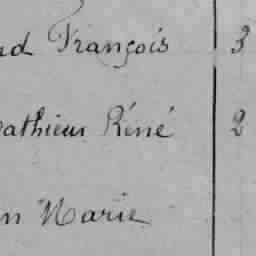 nd François 3
Mathieu Réné 2
n Marie